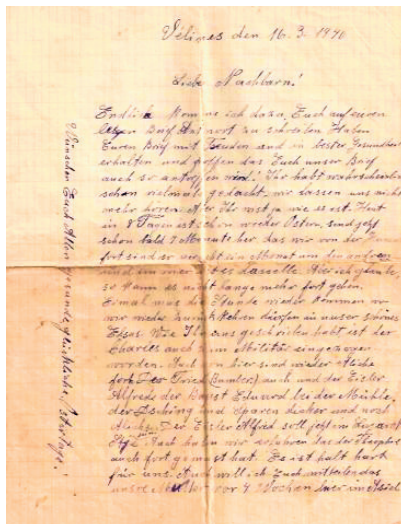 Vélines den 16. 3. 1940
Liebe Nachbarn!
Endlich komme ich dazu, Euch auf euren
Brief Antwort zu schreiben Haben
Euren Brief mit Freuden und in bester Gesundheit
erhalten und hoffen das Euch unser Brief
auch so antreffen wird! Ihr habt wahrscheinlich
schon vielmals gedacht, wir lassen uns nicht
mehr hören. Aber Ihr wist ja wie es ist. Heut
in 8 Tagen ist schon wieder Ostern, sind jetzt
schon bald 7 Monate her das wir von der
fort sind so vergeht ein Monat um den andren
und immer das dasselbe. Aber ich glaube,
so kann es nicht lange mehr fort gehen.
Einmal wird die Stunde wieder kommen wo
wir wieder zurück kehren dürfen in unser schönes
Elsas. Wie Ihr uns geschrieben habt ist der
Charles auch zum Militär eingezogen
worden. Auch von hier sind wieder etliche
fort. Der Fried auch und der Erster
Alfred der Eduard bei der Mühle,
der und und noch
etliche. Der Erster Alfred soll jetzt im
Auch haben wir erfahren das der
auch fort gemust hat. Es ist halt hart
für uns. Auch will ich Euch mitteilen das
unsre Mutter vor 4 Wochen hier im
Wünschen Euch Allen gesunde glückliche Ostertage!